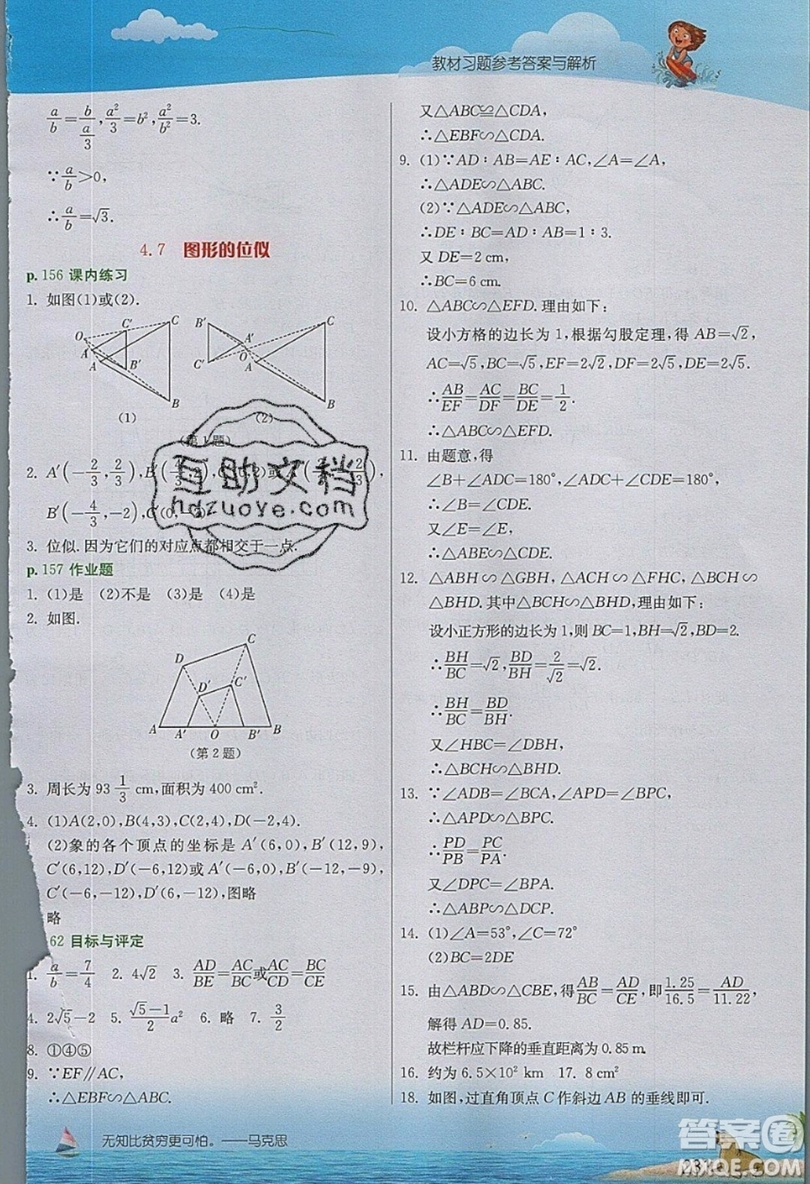 教材习题参考答案与解析
a/b = b/(a/3), a²/3 = b², a²/b² = 3.
∵a/b>0,
∴a/b=√3.
4.7 图形的位似
p.156 课内练习
1. 如图(1)或(2).
C′ C B′ C
O A′
A′ O
A B′ C′ A
B B
(1) (2)
(第1题)
2. A′(-2/3, 2/3), B′
B′(-4/3, -2), C′
3. 位似. 因为它们的对应点都相交于一点.
p.157 作业题
1. (1)是 (2)不是 (3)是 (4)是
2. 如图.
C
D
D′ C′
A A′ O B′ B
(第2题)
3. 周长为 93 1/3 cm,面积为 400 cm².
4. (1)A(2,0),B(4,3),C(2,4),D(-2,4).
(2)象的各个顶点的坐标是 A′(6,0),B′(12,9),
C′(6,12),D′(-6,12)或A′(-6,0),B′(-12,-9),
C′(-6,-12),D′(6,-12),图略
略
62 目标与评定
1. a/b=7/4 2. 4√2 3. AD/BE=AC/BC或AC/CD=BC/CE
4. 2√5-2 5. (√5-1)/2 a² 6. 略 7. 3/2
8. ①④⑤
9. ∵EF∥AC,
∴△EBF∽△ABC.
又△ABC≌△CDA,
∴△EBF∽△CDA.
9. (1)∵AD∶AB=AE∶AC,∠A=∠A,
∴△ADE∽△ABC.
(2)∵△ADE∽△ABC,
∴DE∶BC=AD∶AB=1∶3.
又 DE=2 cm
∴BC=6 cm.
10. △ABC∽△EFD. 理由如下:
设小方格的边长为 1,根据勾股定理,得 AB=√2,
AC=√5,BC=√5,EF=2√2,DF=2√5,DE=2√5.
∴AB/EF=AC/DF=BC/DE=1/2.
∴△ABC∽△EFD.
11. 由题意,得
∠B+∠ADC=180°,∠ADC+∠CDE=180°,
∴∠B=∠CDE.
又∠E=∠E,
∴△ABE∽△CDE.
12. △ABH∽△GBH,△ACH∽△FHC,△BCH∽
△BHD. 其中△BCH∽△BHD,理由如下:
设小正方形的边长为1,则 BC=1,BH=√2,BD=2.
∴BH/BC=√2, BD/BH=2/√2=√2.
∴BH/BC=BD/BH.
又∠HBC=∠DBH,
∴△BCH∽△BHD.
13. ∵∠ADB=∠BCA,∠APD=∠BPC,
∴△APD∽△BPC.
∴PD/PB=PC/PA.
又∠DPC=∠APB.
∴△ABP∽△DCP.
14. (1)∠A=53°,∠C=72°
(2)BC=2DE
15. 由△ABD∽△CBE,得AB/BC=AD/CE,即1.25/16.5=AD/11.22,
解得 AD=0.85.
故栏杆应下降的垂直距离为 0.85 m.
16. 约为 6.5×10² km 17. 8 cm²
18. 如图,过直角顶点 C 作斜边 AB 的垂线即可.
无知比贫穷更可怕。——马克思
互助文档
hdzuoye.com
答案圈